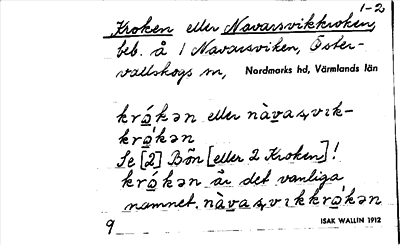 1-2
Kroken eller Navarsvikkroken,
beb. å 1 Navarsviken, Öster-
vallskogs sn, Nordmarks hd, Värmlands län
kró̱kən eller nàva̱ʂvɪk-
krò̱kən
Se [2] Bön [eller 2 Kroken]!
kró̱kən är det vanliga
namnet. nàva̱ʂvɪkkrò̱kən
9 ISAK WALLIN 1912